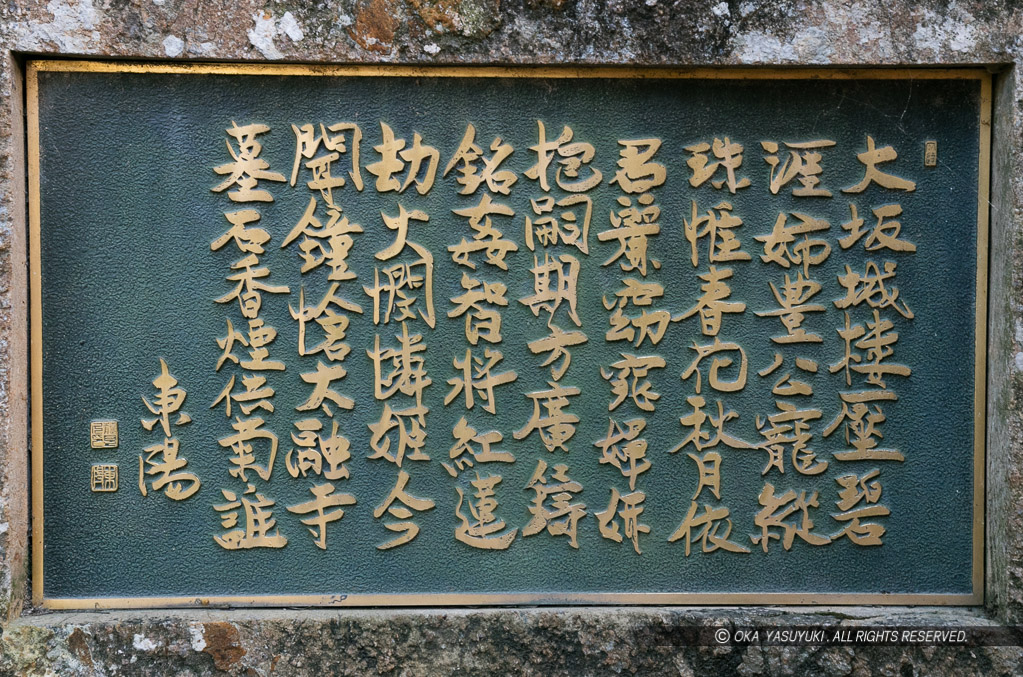 大坂城楼壓碧
涯婦豊公寵縦
珠帷春花秋月依
君窈窕嬋妍
抱嗣期方廣鑄
銘姦智将紅蓮
劫火憫憐姫今
聞鐘愴大融寺
墓石香煙誰
東陽
© OKA YASUYUKI. ALL RIGHTS RESERVED.